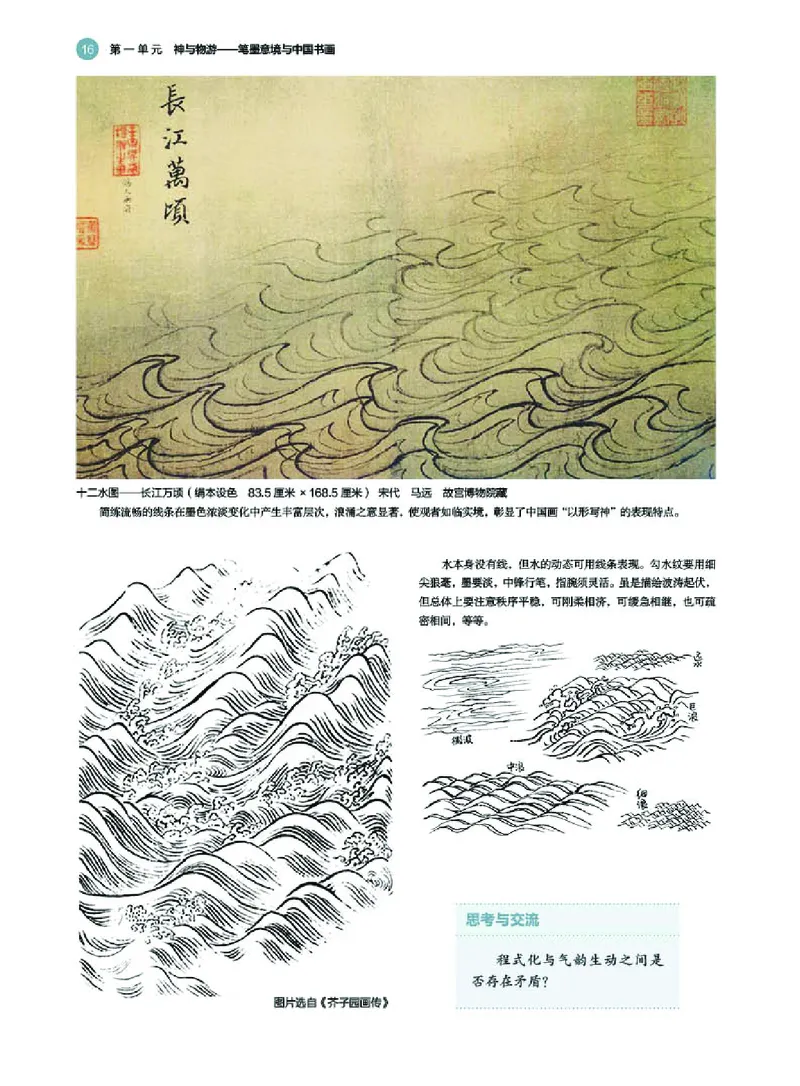 16 第一单元 神与物游——笔墨意境与中国书画
長江萬頃
十二水图——长江万顷（绢本设色 83.5厘米×168.5厘米） 宋代 马远 故宫博物院藏
简练流畅的线条在墨色浓淡变化中产生丰富层次，浪涌之意显著，使观者如临实境，彰显了中国画“以形写神”的表现特点。
水本身没有线，但水的动态可用线条表现。勾水纹要用细
尖狼毫，墨要淡，中锋行笔，指腕须灵活。虽是描绘波涛起伏，
但总体上要注意秩序平稳，可刚柔相济，可缓急相继，也可疏
密相间，等等。
巨浪
中浪
细浪
图片选自《芥子园画传》
思考与交流
程式化与气韵生动之间是
否存在矛盾？